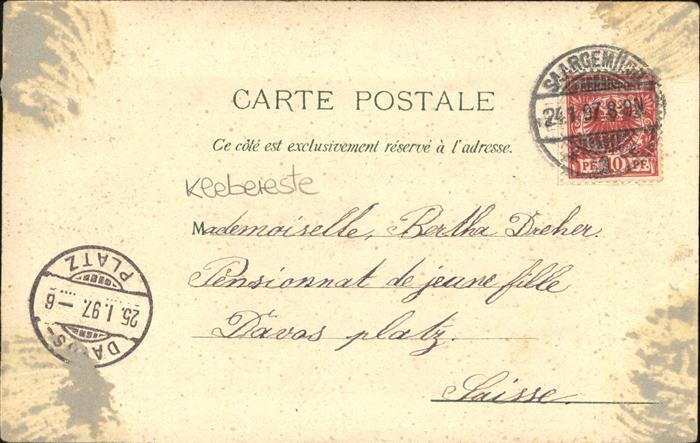 CARTE POSTALE
Ce côté est exclusivement réservé à l'adresse.
Klebereste
Mademoiselle, Bertha Dreher.
Pensionnat de jeune fille
Davos platz.
Suisse.
SAARGEMÜND
24.1.97.8-9N
PF 10 PF
DAVOS-
25.I.97.-6
PLATZ